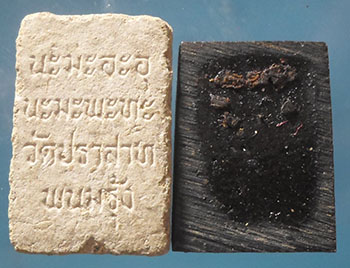 นะมะอะอุ
นะมะพะทะ
วัดปราสาท
พนมรุ้ง